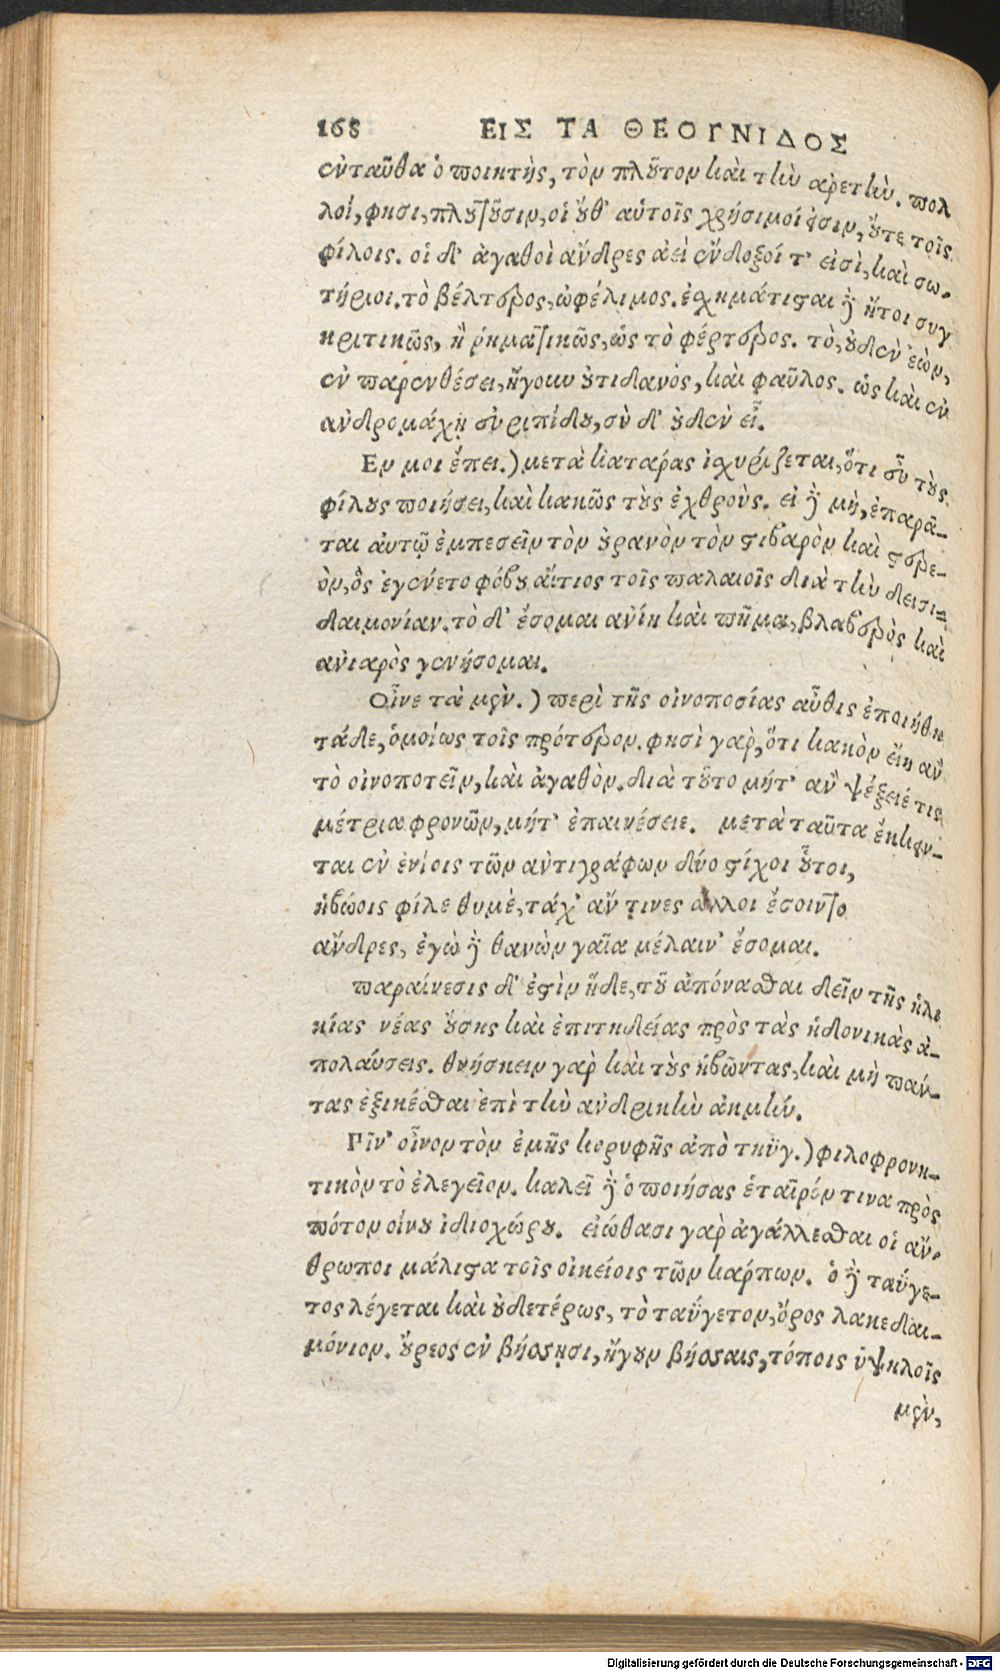 168 ΕΙΣ ΤΑ ΘΕΟΓΝΙΔΟΣ
ἐνταῦθα ὁ ποιητὴς, τὸν πλοῦτον καὶ τὴν ἀρετὴν. πολ
λοί, φησι, πλουτοῦσιν, οἱ οὔθ' αὑτοῖς χρήσιμοί εἰσιν, οὔτε τοῖς
φίλοις. οἱ δ' ἀγαθοὶ ἄνδρες ἀεὶ ἔνδοξοί τ' εἰσὶ, καὶ σω-
τήριοι. τὸ βέλτερος, ὠφέλιμος. ἐσχημάτισται δὲ ἤτοι συγ
κριτικῶς, ἢ ῥηματικῶς, ὡς τὸ φέρτερος. τὸ, οὐδὲν ἐὼν,
ἐν παρενθέσει, ἤγουν οὐτιδανὸς, καὶ φαῦλος. ὡς καὶ ἐν
ἀνδρομάχῃ εὐριπίδου, σὺ δ' οὐδὲν εἶ.
Εν μοι ἔπει.) μετὰ κατάρας ἰσχυρίζεται, ὅτι εὖ τοὺς
φίλους ποιήσει, καὶ κακῶς τοὺς ἐχθροὺς. εἰ δὲ μὴ, ἐπαρᾶ-
ται αὐτῷ ἐμπεσεῖν τὸν οὐρανὸν τὸν στιβαρὸν καὶ στερε-
ὸν, ὃς ἐγένετο φόβου αἴτιος τοῖς παλαιοῖς διὰ τὴν δεισι-
δαιμονίαν. τὸ δ' ἔσομαι ἀνίη καὶ πῆμα, βλαβερὸς καὶ
ἀνιαρὸς γενήσομαι.
Οἶνε τὰ μὲν.) περὶ τῆς οἰνοποσίας αὖθις ἐποιήθη
τάδε, ὁμοίως τοῖς πρότερον. φησὶ γὰρ, ὅτι κακὸν εἴη ἂν
τὸ οἰνοποτεῖν, καὶ ἀγαθὸν. διὰ τοῦτο μήτ' ἂν ψέξειέ τις
μέτρια φρονῶν, μήτ' ἐπαινέσειε. μετὰ ταῦτα ἔκκειν-
ται ἐν ἐνίοις τῶν ἀντιγράφων δύο στίχοι οὗτοι,
ἡβώοις φίλε θυμὲ, τάχ' ἄν τινες ἄλλοι ἔσοιντο
ἄνδρες, ἐγὼ δὲ θανὼν γαῖα μέλαιν' ἔσομαι.
παραίνεσις δ' ἐστὶν ἥδε, τοῦ ἀπόνασθαι δεῖν τῆς ἡλι
κίας νέας οὔσης καὶ ἐπιτηδείας πρὸς τὰς ἡδονικὰς ἀ-
πολαύσεις. θνήσκειν γὰρ καὶ τοὺς ἡβῶντας, καὶ μὴ πάν-
τας ἐξικέσθαι ἐπὶ τὴν ἀνδρικὴν ἀκμήν.
Πῖν' οἶνον τὸν ἐμῆς κορυφῆς ἀπὸ τηϋγ.) φιλοφρονη-
τικὸν τὸ ἐλεγεῖον. καλεῖ δὲ ὁ ποιήσας ἑταῖρόν τινα πρὸς
πότον οἴνου ἰδιοχώρου. εἰώθασι γὰρ ἀγάλλεσθαι οἱ ἄν-
θρωποι μάλιστα τοῖς οἰκείοις τῶν καρπων. ὁ δὲ ταΰγε-
τος λέγεται καὶ οὐδετέρως, τὸ ταΰγετον, ὄρος λακεδαι-
μόνιον. οὔρεος ἐν βήσσῃσι, ἤγουν βήσσαις, τόποις ὑψηλοῖς
μὲν,
Digitalisierung gefördert durch die Deutsche Forschungsgemeinschaft - DFG